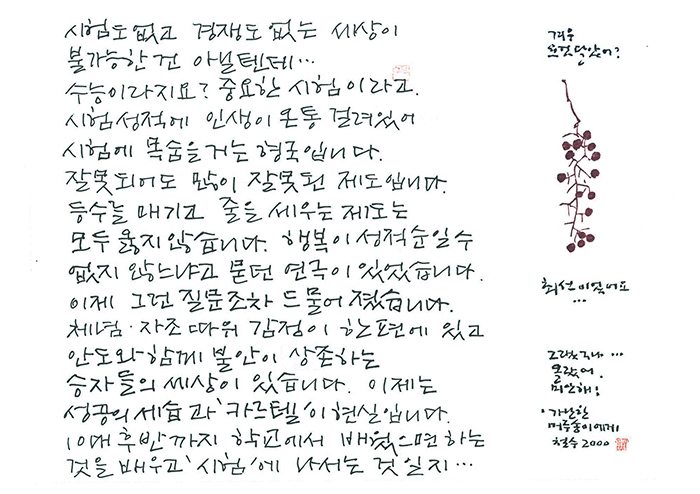 시험도 없고 경쟁도 없는 세상이
불가능한 건 아닐텐데…
수능이라지요? 중요한 시험이라고.
시험성적에 인생이 온통 걸려있어
시험에 목숨을 거는 형국입니다.
잘못되어도 많이 잘못된 제도입니다.
등수를 매기고 줄을 세우는 제도는
모두 옳지 않습니다. 행복이 성적순일 수
없지 않느냐고 묻던 연극이 있었습니다.
이제 그런 질문조차 드물어 졌습니다.
체념·자조 따위 감정이 한편에 있고
안도와 함께 불안이 상존하는
승자들의 세상이 있습니다. 이제는
성공의 세습과 '카르텔'이 현실입니다.
10대 후반까지 학교에서 배웠으면 하는
것을 배우고 '시험'에 나서는 것일지…
겨우
요것 달았어?
최선이었어요
…
그랬구나…
몰랐어.
미안해!
·가난한
머루송이에게
철수 2000